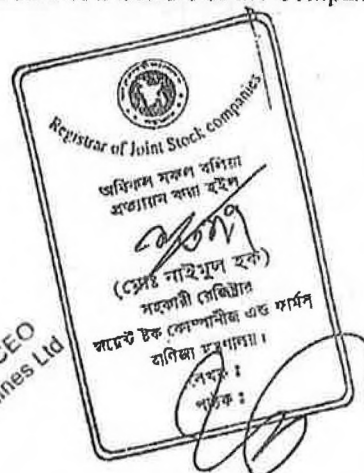 Registrar of Joint Stock companies
অবিকল নকল বলিয়া
প্রত্যায়ন করা হইল
(মোঃ নাইমুল হক)
সহকারী রেজিষ্ট্রার
জয়েন্ট ষ্টক কোম্পানীজ এন্ড ফার্মস
বাণিজ্য মন্ত্রণালয়।
লেখক :
পাঠক :
CEO
nes Ltd